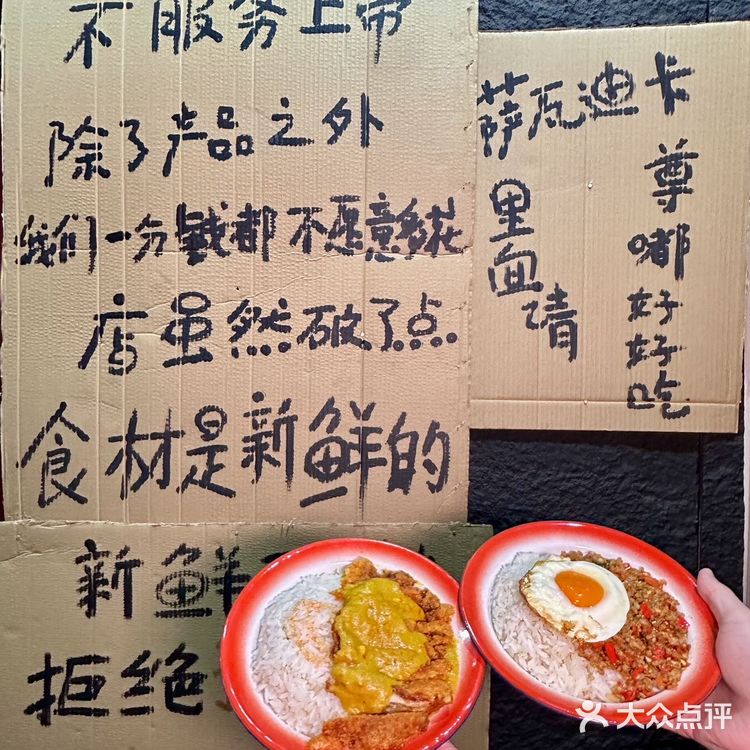 不服务上帝
除了产品之外
我们一分钱都不愿意多花
店虽然破了点
食材是新鲜的
新鲜
拒绝
萨瓦迪卡
里面请
尊嘟好好吃
大众点评